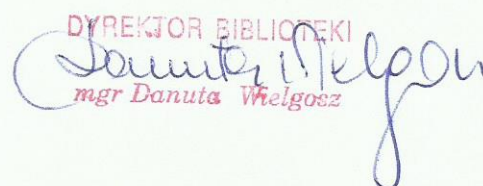 DYREKTOR BIBLIOTEKI
Danuta Wielgosz
mgr Danuta Wielgosz